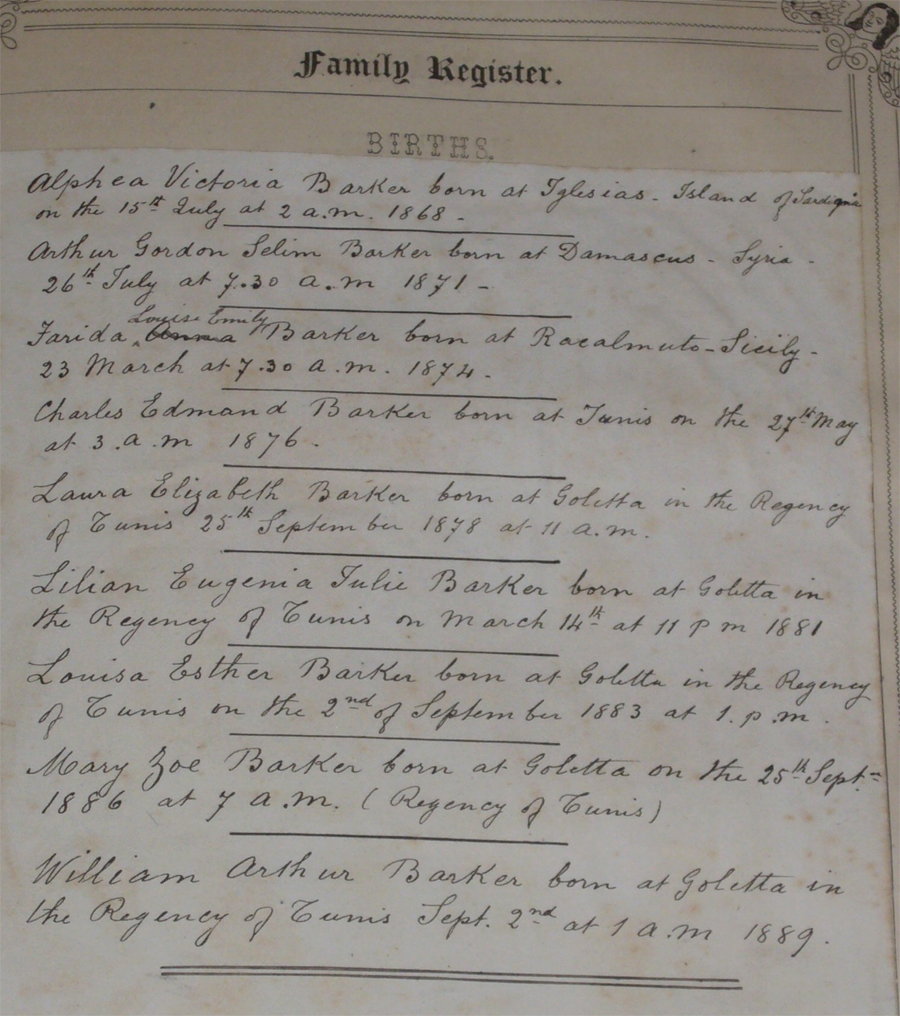 Family Register.
BIRTHS.
Alphea Victoria Barker born at Iglesias - Island of Sardignia
on the 15th July at 2 a.m. 1868 -
Arthur Gordon Selim Barker born at Damascus - Syria -
26th July at 7.30 a.m 1871 -
Louise Emily
Farida Anna Barker born at Racalmuto - Sicily -
23 March at 7.30 a.m. 1874 -
Charles Edmand Barker born at Tunis on the 27th May
at 3.a.m 1876 -
Laura Elizabeth Barker born at Goletta in the Regency
of Tunis 25th September 1878 at 11 a.m.
Lilian Eugenia Julie Barker born at Goletta in
the Regency of Tunis on March 14th at 11 p m 1881
Louisa Esther Barker born at Goletta in the Regency
of Tunis on the 2nd of September 1883 at 1.p.m.
Mary Zoe Barker born at Goletta on the 25th Sept.
1886 at 7 a.m. (Regency of Tunis)
William Arthur Barker born at Goletta in
the Regency of Tunis Sept. 2nd at 1 a.m 1889.